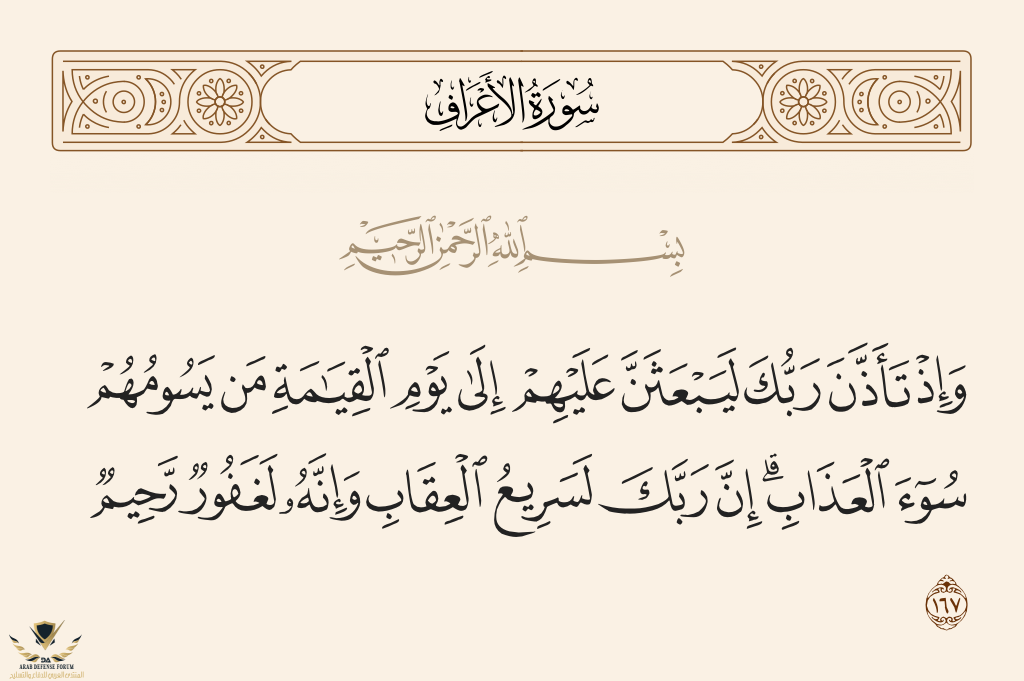 سُورَةُ الأَعْرَافِ
بِسْمِ ٱللَّهِ ٱلرَّحْمَٰنِ ٱلرَّحِيمِ
وَإِذْ تَأَذَّنَ رَبُّكَ لَيَبْعَثَنَّ عَلَيْهِمْ إِلَىٰ يَوْمِ ٱلْقِيَـٰمَةِ مَن يَسُومُهُمْ
سُوٓءَ ٱلْعَذَابِ ۗ إِنَّ رَبَّكَ لَسَرِيعُ ٱلْعِقَابِ وَإِنَّهُۥ لَغَفُورٌ رَّحِيمٌ
١٦٧
DA
ARAB DEFENSE FORUM
المنتدى العربي للدفاع والتسليح